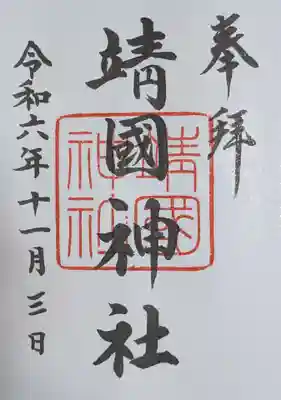 奉拝
靖國神社
靖國神社
令和六年十一月三日